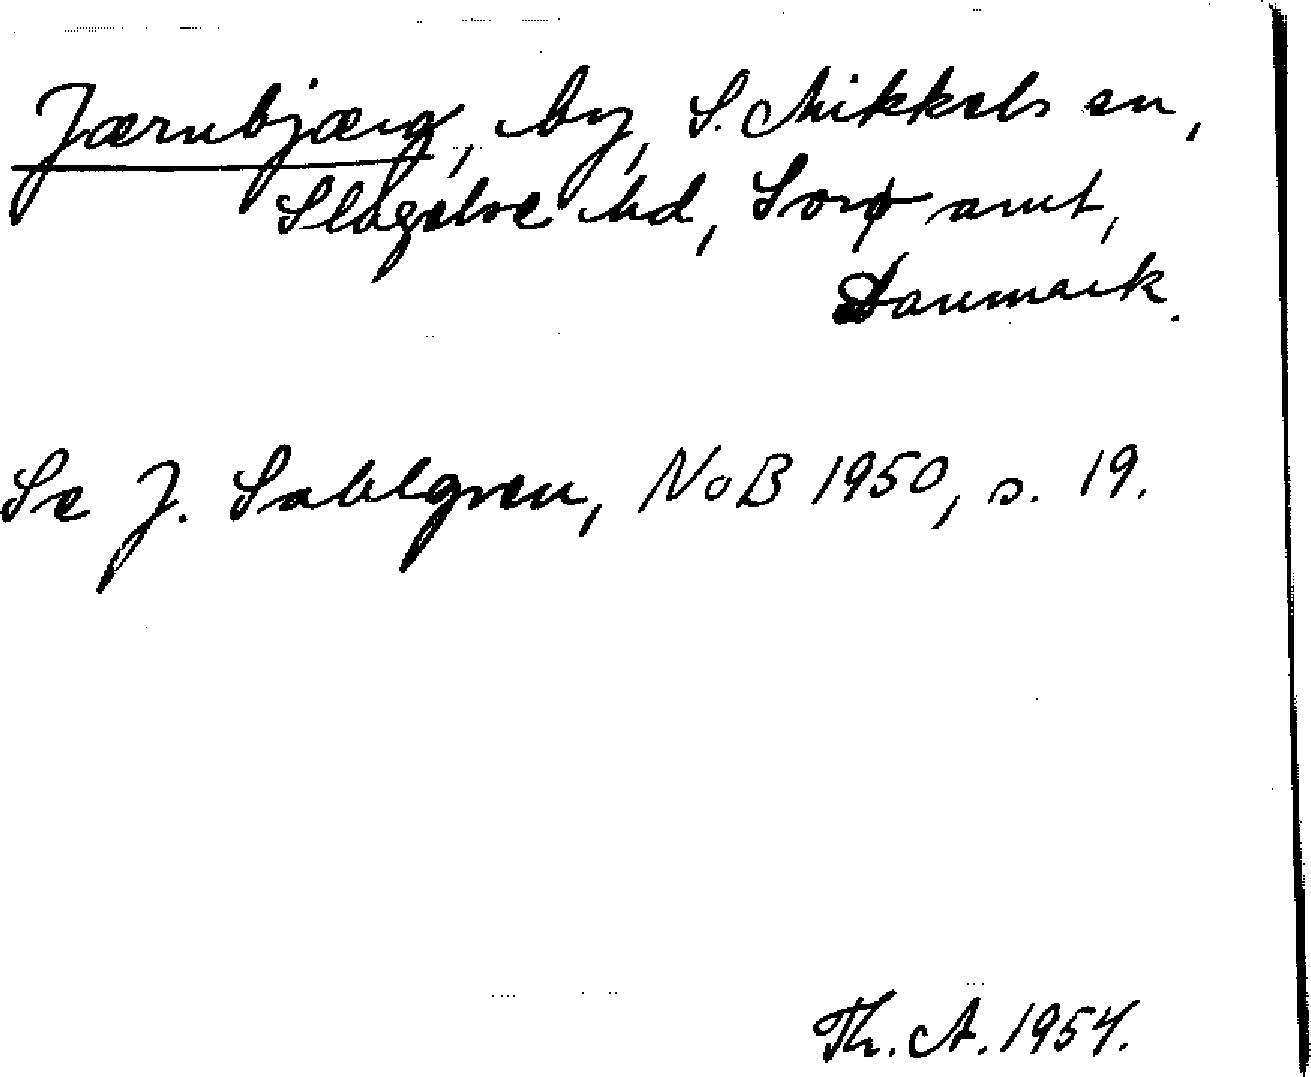 Jærnbjærg, by, S. Mikkels sn,
Slagelse hd, Sorø amt,
Danmark.
Se J. Sahlgren, NoB 1950, s. 19.
Th. A. 1954.